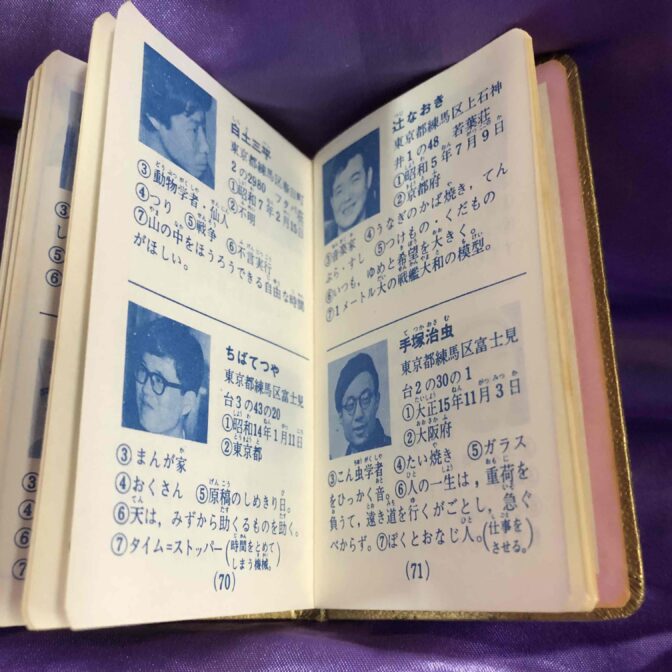 白土三平
東京都練馬区春日町
2の2980 フタバ荘
①昭和7年2月15日
②不明
③動物学者・仙人
④つり ⑤戦争 ⑥不言実行
⑦山の中をほうろうできる自由な時間
がほしい。
ちばてつや
東京都練馬区富士見
台3の43の20
①昭和14年1月11日
②東京都
③まんが家
④おくさん ⑤原稿のしめきり日。
⑥天は，みずから助くるものを助く。
⑦タイム=ストッパー(時間をとめて
しまう機械。)
(70)
辻なおき
東京都練馬区上石神
井1の48 若葉荘
①昭和5年7月9日
②京都府
③音楽家 ④うなぎのかば焼き，てん
ぷら・すし ⑤つけもの・くだもの
⑥いつも，ゆめと希望を大きく。
⑦1メートル大の戦艦大和の模型。
手塚治虫
東京都練馬区富士見
台2の30の1
①大正15年11月3日
②大阪府
③こん虫学者 ④たい焼き ⑤ガラス
をひっかく音。⑥人の一生は，重荷を
負うて，遠き道を行くがごとし，急ぐ
べからず。⑦ぼくとおなじ人。(仕事を
させる。)
(71)